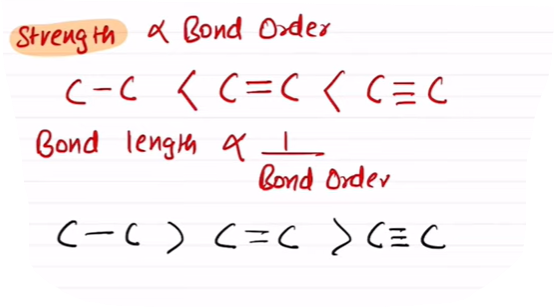 Strength ∝ Bond Order
C-C < C=C < C≡C
Bond length ∝ 1
Bond Order
C-C > C=C > C≡C